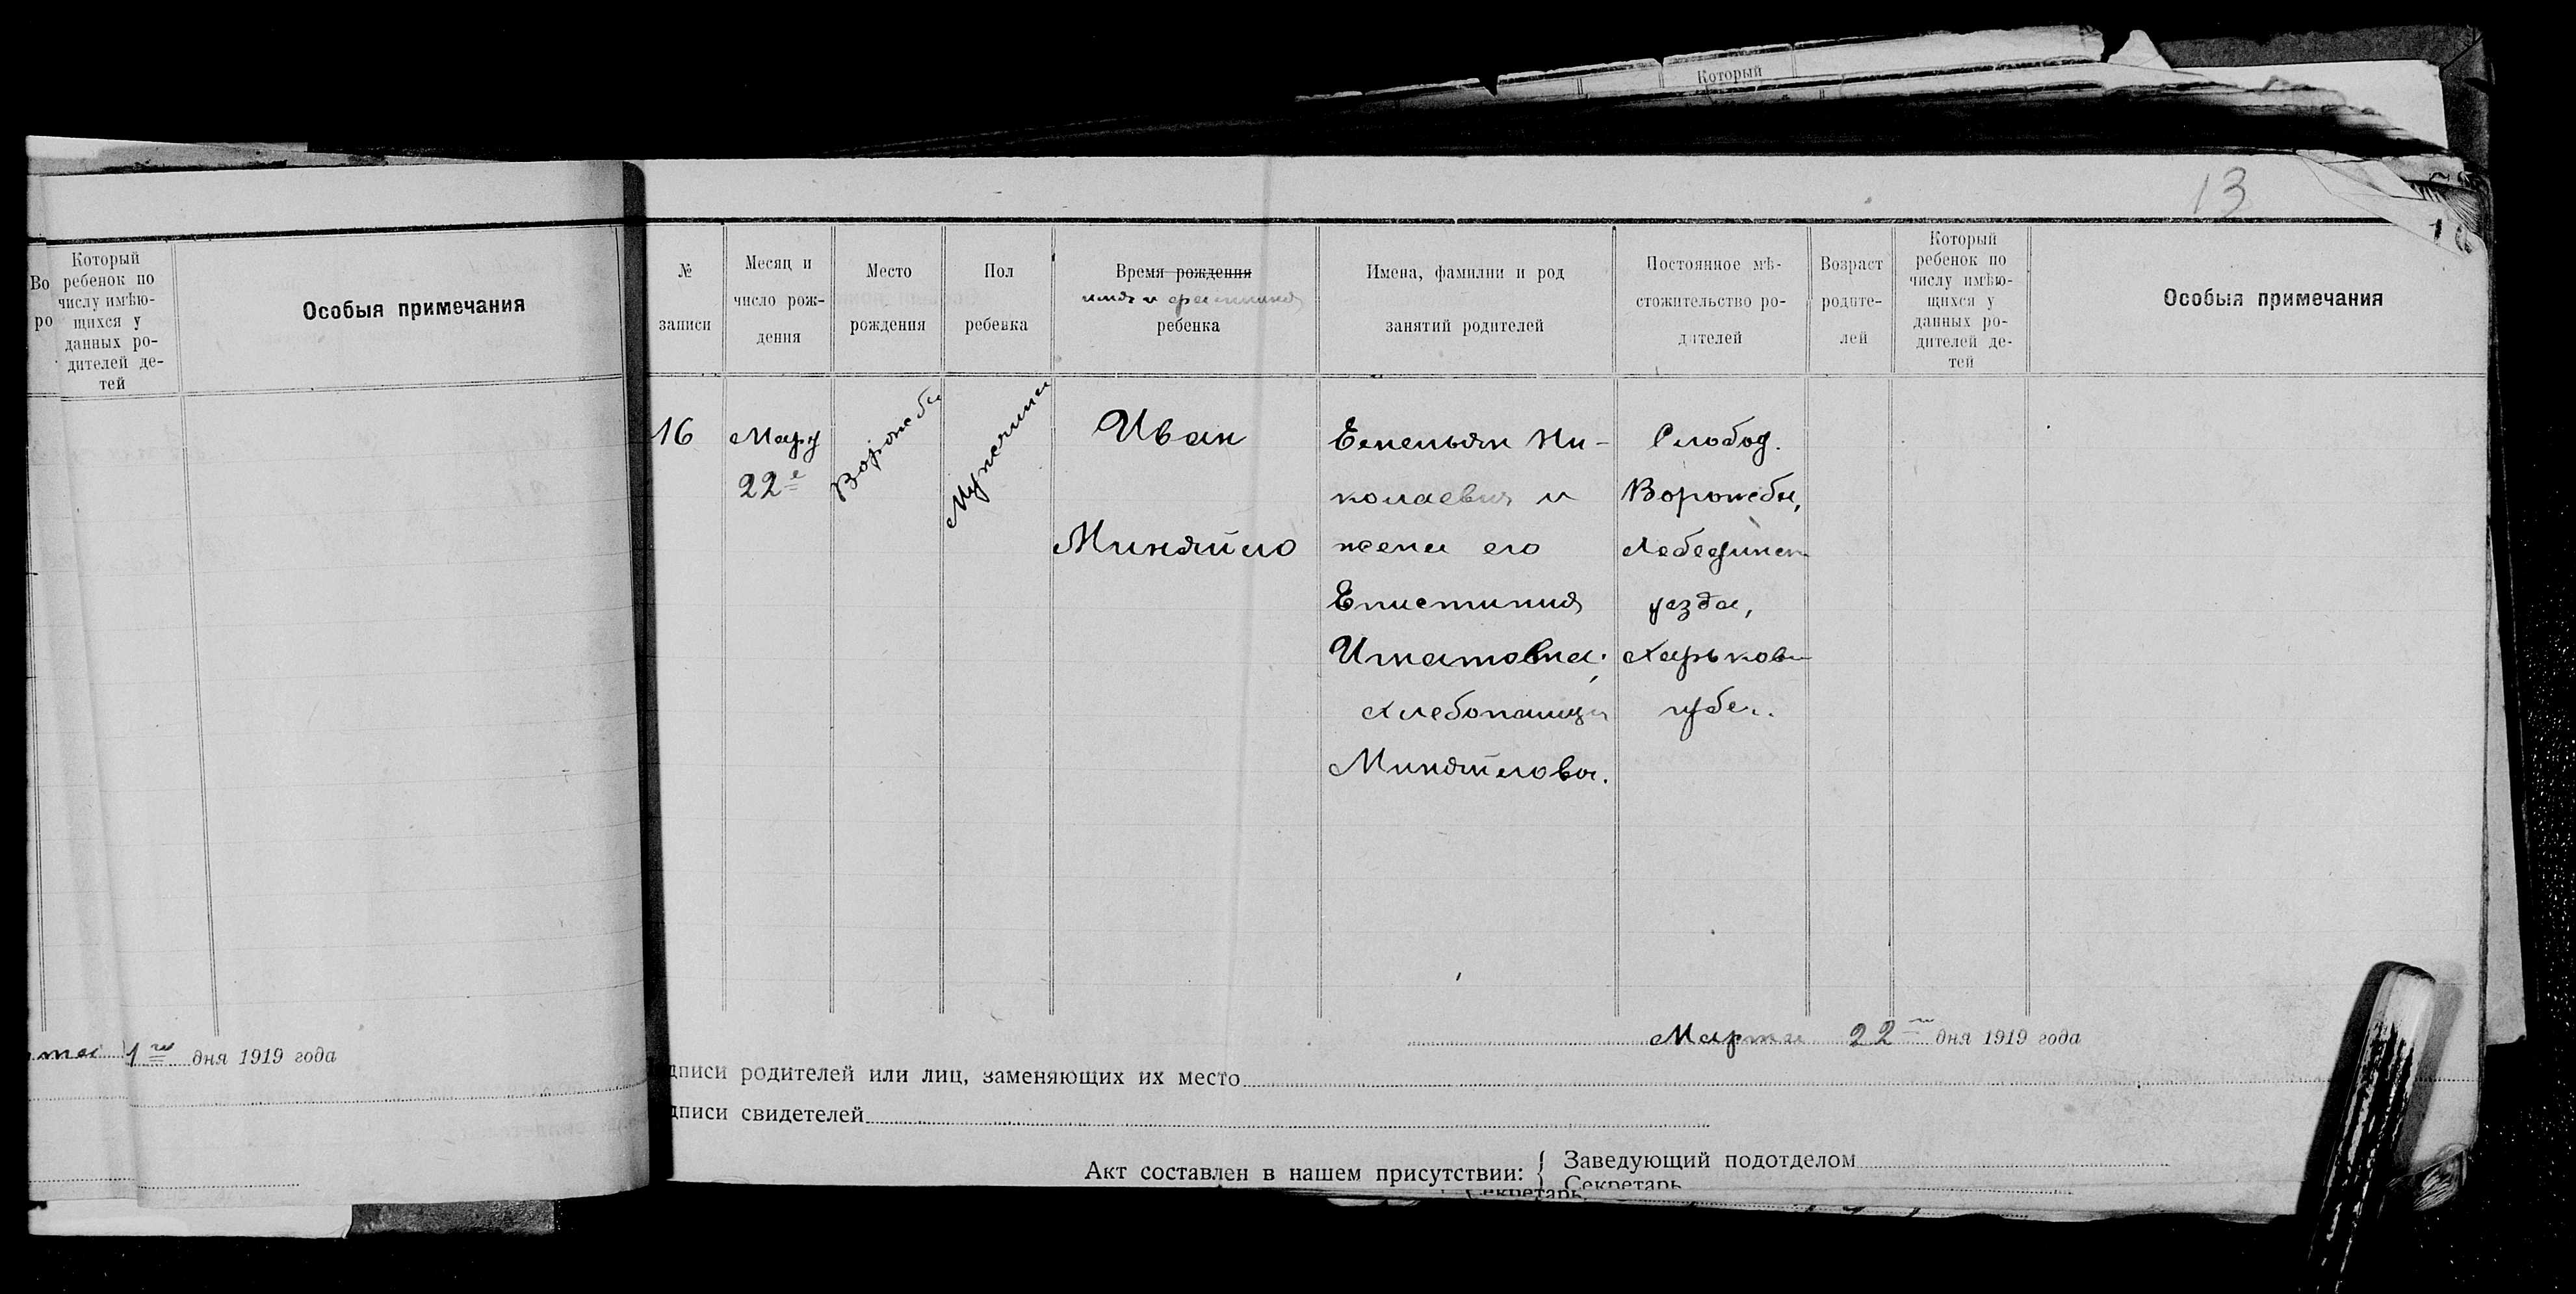 Который
13
Во
ро
Который
ребенок по
числу имѣю-
щихся у
данных ро-
дителей де-
тей
Особыя примечания
1
№
записи
Месяц и
число рож-
дения
Место
рождения
Пол
ребенка
Время рождения
имя и фамилия
ребенка
Имена, фамилии и род
занятий родителей
Постоянное мѣ-
стожительство ро-
дителей
Возраст
родите-
лей
Который
ребенок по
числу имѣю-
щихся у
данных ро-
дителей де-
тей
Особыя примечания
16
Март
22е
Ворожба
Мужчина
Иван
Миняйло
Емельян Ни-
колаевич и
жена его
Епистимия
Игнатовна;
хлебопашцы
Миняйлова.
Слобод.
Ворожбы,
Лебединск
уезда,
Харьков
губер.
та 1го дня 1919 года
Марта 22го дня 1919 года
дписи родителей или лиц, заменяющих их место
дписи свидетелей
Акт составлен в нашем присутствии:
Заведующий подотделом
Секретарь
Секретарь